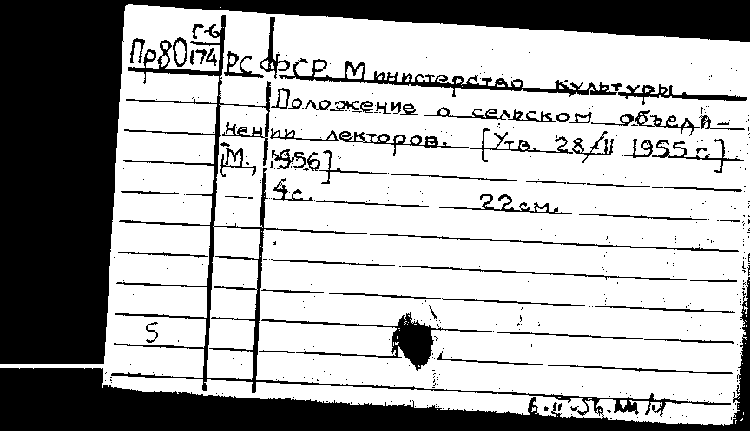 Г-6
Пр80 174 РСФСР. Министерство культуры.
Положение о сельском объеди-
нении лекторов. [Утв. 28/II 1955 г.]
[М., 1956].
4 с. 22 см.
5
6.II.56.